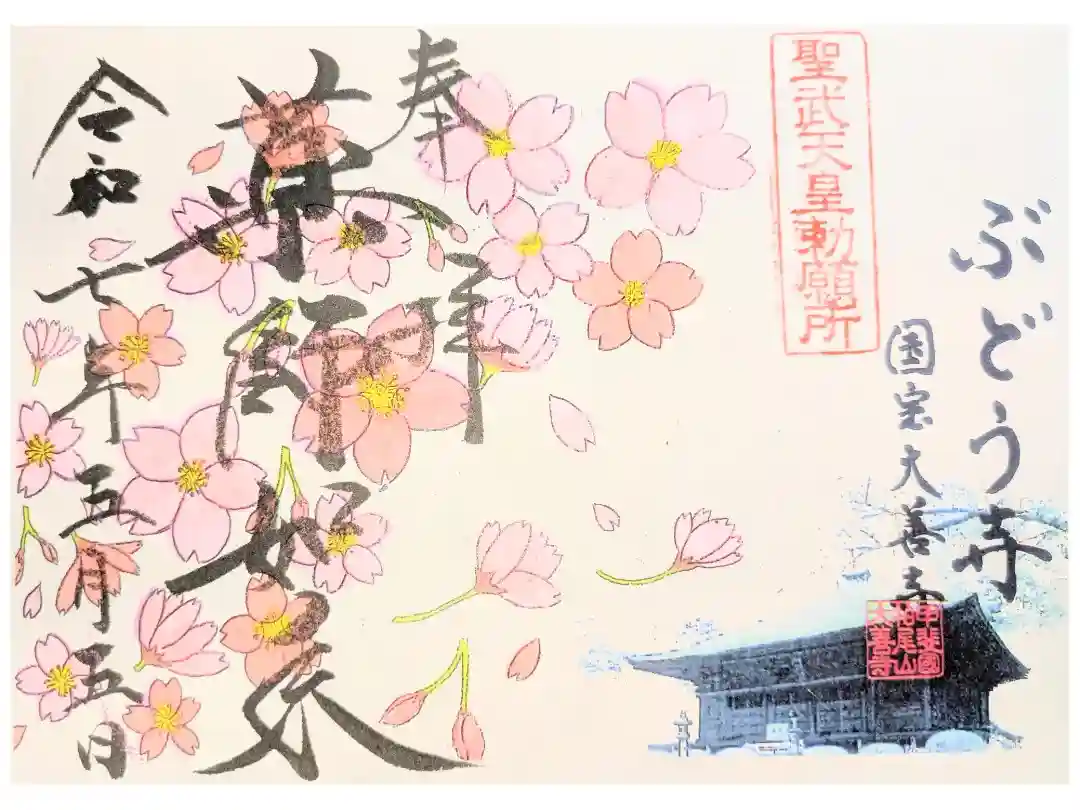 ぶどう寺
国宝大善寺
甲斐國
柏尾山
大善寺
聖武天皇勅願所
奉拝
薬師如来
令和七年五月五日